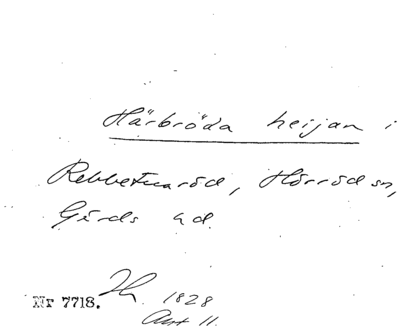 Härbröda heijan i
Rebbetuaröd, Hörröd sn,
Gärds hd.
Nr 7718. 1828
Akt 11.